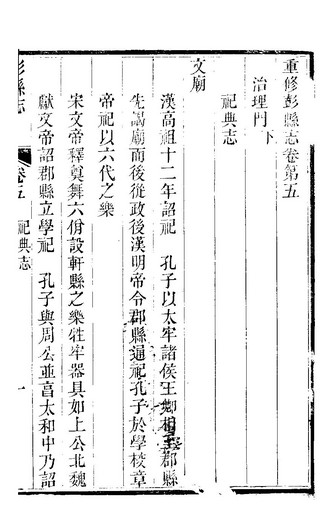 重修彭縣志卷第五
治理門下
祀典志
文廟
漢高祖十二年詔祀 孔子以太牢諸侯王卿相至郡縣
先謁廟而後從政後漢明帝令郡縣遍祀孔子於學校章
帝祀以六代之樂
宋文帝釋奠舞六佾設軒縣之樂牲牢器具如上公北魏
獻文帝詔郡縣立學祀 孔子與周公並享太和中乃詔
彭縣志
卷五
祀典志
一